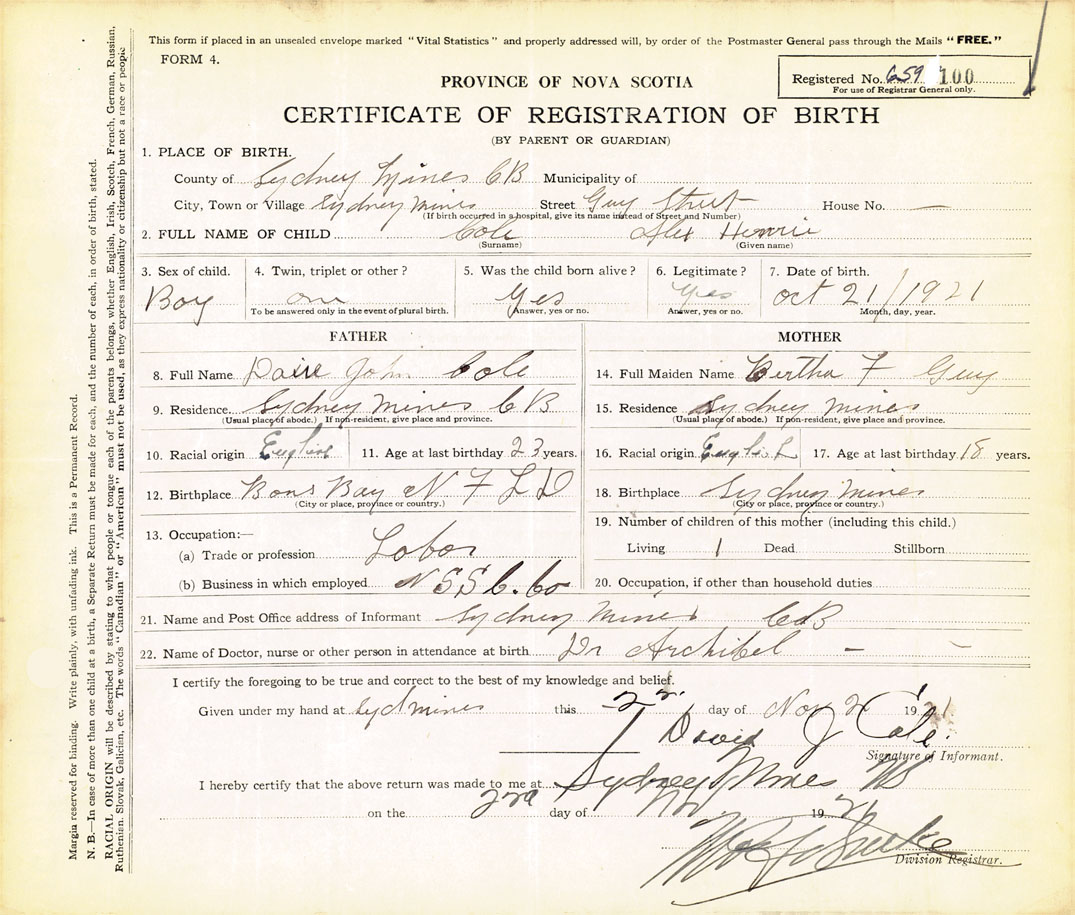 This form if placed in an unsealed envelope marked "Vital Statistics" and properly addressed will, by order of the Postmaster General pass through the Mails "FREE."
FORM 4.
Registered No. 659 100
For use of Registrar General only.
PROVINCE OF NOVA SCOTIA
CERTIFICATE OF REGISTRATION OF BIRTH
(BY PARENT OR GUARDIAN)
1. PLACE OF BIRTH.
County of Sydney Mines CB Municipality of
City, Town or Village Sydney Mines Street Guy Street House No. —
(If birth occurred in a hospital, give its name instead of Street and Number)
2. FULL NAME OF CHILD Cole Alex
(Surname) (Given name)
3. Sex of child. 4. Twin, triplet or other? 5. Was the child born alive? 6. Legitimate? 7. Date of birth.
Boy one Yes Yes Oct 21/1921
To be answered only in the event of plural birth. Answer, yes or no. Answer, yes or no. Month, day, year.
FATHER MOTHER
8. Full Name John Cole 14. Full Maiden Name Bertha F Guy
9. Residence Sydney Mines CB 15. Residence Sydney Mines
(Usual place of abode.) If non-resident, give place and province. (Usual place of abode.) If non-resident, give place and province.
10. Racial origin English 11. Age at last birthday 23 years. 16. Racial origin English 17. Age at last birthday 18 years.
12. Birthplace Bons Bay N F L D 18. Birthplace Sydney Mines
(City or place, province or country.) (City or place, province or country.)
13. Occupation:— 19. Number of children of this mother (including this child.)
(a) Trade or profession Labor Living 1 Dead Stillborn
(b) Business in which employed N S S C. Co 20. Occupation, if other than household duties
21. Name and Post Office address of Informant Sydney Mines CB
22. Name of Doctor, nurse or other person in attendance at birth Dr Archibel —
I certify the foregoing to be true and correct to the best of my knowledge and belief.
Given under my hand at Syd mines this day of Nov 2 1921
David J Cole.
Signature of Informant.
I hereby certify that the above return was made to me at Sydney Mines NS
on the 2nd day of Nov 1921
Division Registrar.
Margin reserved for binding. Write plainly, with unfading ink. This is a Permanent Record.
N. B.—In case of more than one child at a birth, a Separate Return must be made for each, and the number of each, in order of birth, stated.
RACIAL ORIGIN will be described by stating to what people or tongue each of the parents belongs, whether English, Irish, Scotch, French, German, Russian,
Ruthenian, Slovak, Galician, etc. The words "Canadian" or "American" must not be used, as they express nationality or citizenship but not a race or people